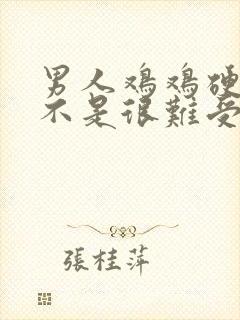 男人鸡鸡硬
不是很难受
張桂萍